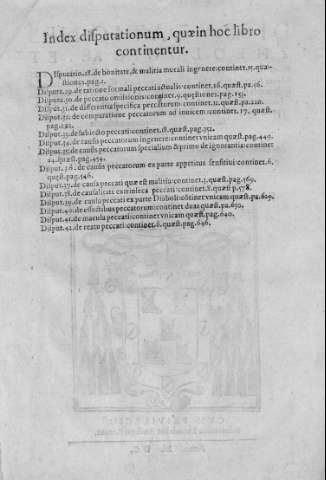 Index disputationum, quæ in hoc libro
continentur.
Disputatio.28. de bonitate, & malitia morali in genere: continet.15. quæ-
stiones.pag.1.
Disput.29. de ratione formali peccati actualis: continet.16. quæst.pa.56.
Disput.30. de peccato omissionis: continet.9. quæstiones. pag.153.
Disput.31. de differentia specifica peccatorum: continet.11. quæst.pa.220.
Disput.32. de comparatione peccatorum ad inuicem continet. 17. quæst.
pag.
Disput.33. de subiecto peccati: continet. quæst.pag.
Disput.34. de causis peccatorum in genere: continet vnicam quæst.pag.449.
Disput.35. de causis peccatorum specialium & primo de ignorantia: continet
quæst.pag.454.
Disput.36. de causis peccatorum ex parte appetitus sensitiui: continet.6.
quæst.pag.546.
Disput.37. de causa peccati quæ est malitia: continet.3. quæst.pag.569.
Disput.38. de causalitate extrinseca peccati: continet.8. quæst.p.578.
Disput.39. de causa peccati ex parte Diaboli: cōtinet vnicam quæst.pa.629.
Disput.40. de effectibus peccatorum: continet duas quæst.pa.630.
Disput.41. de macula peccati: continet vnicam quæst.pag.640.
Disput.42. de reatu peccati: continet.6. quæst.pag.646.